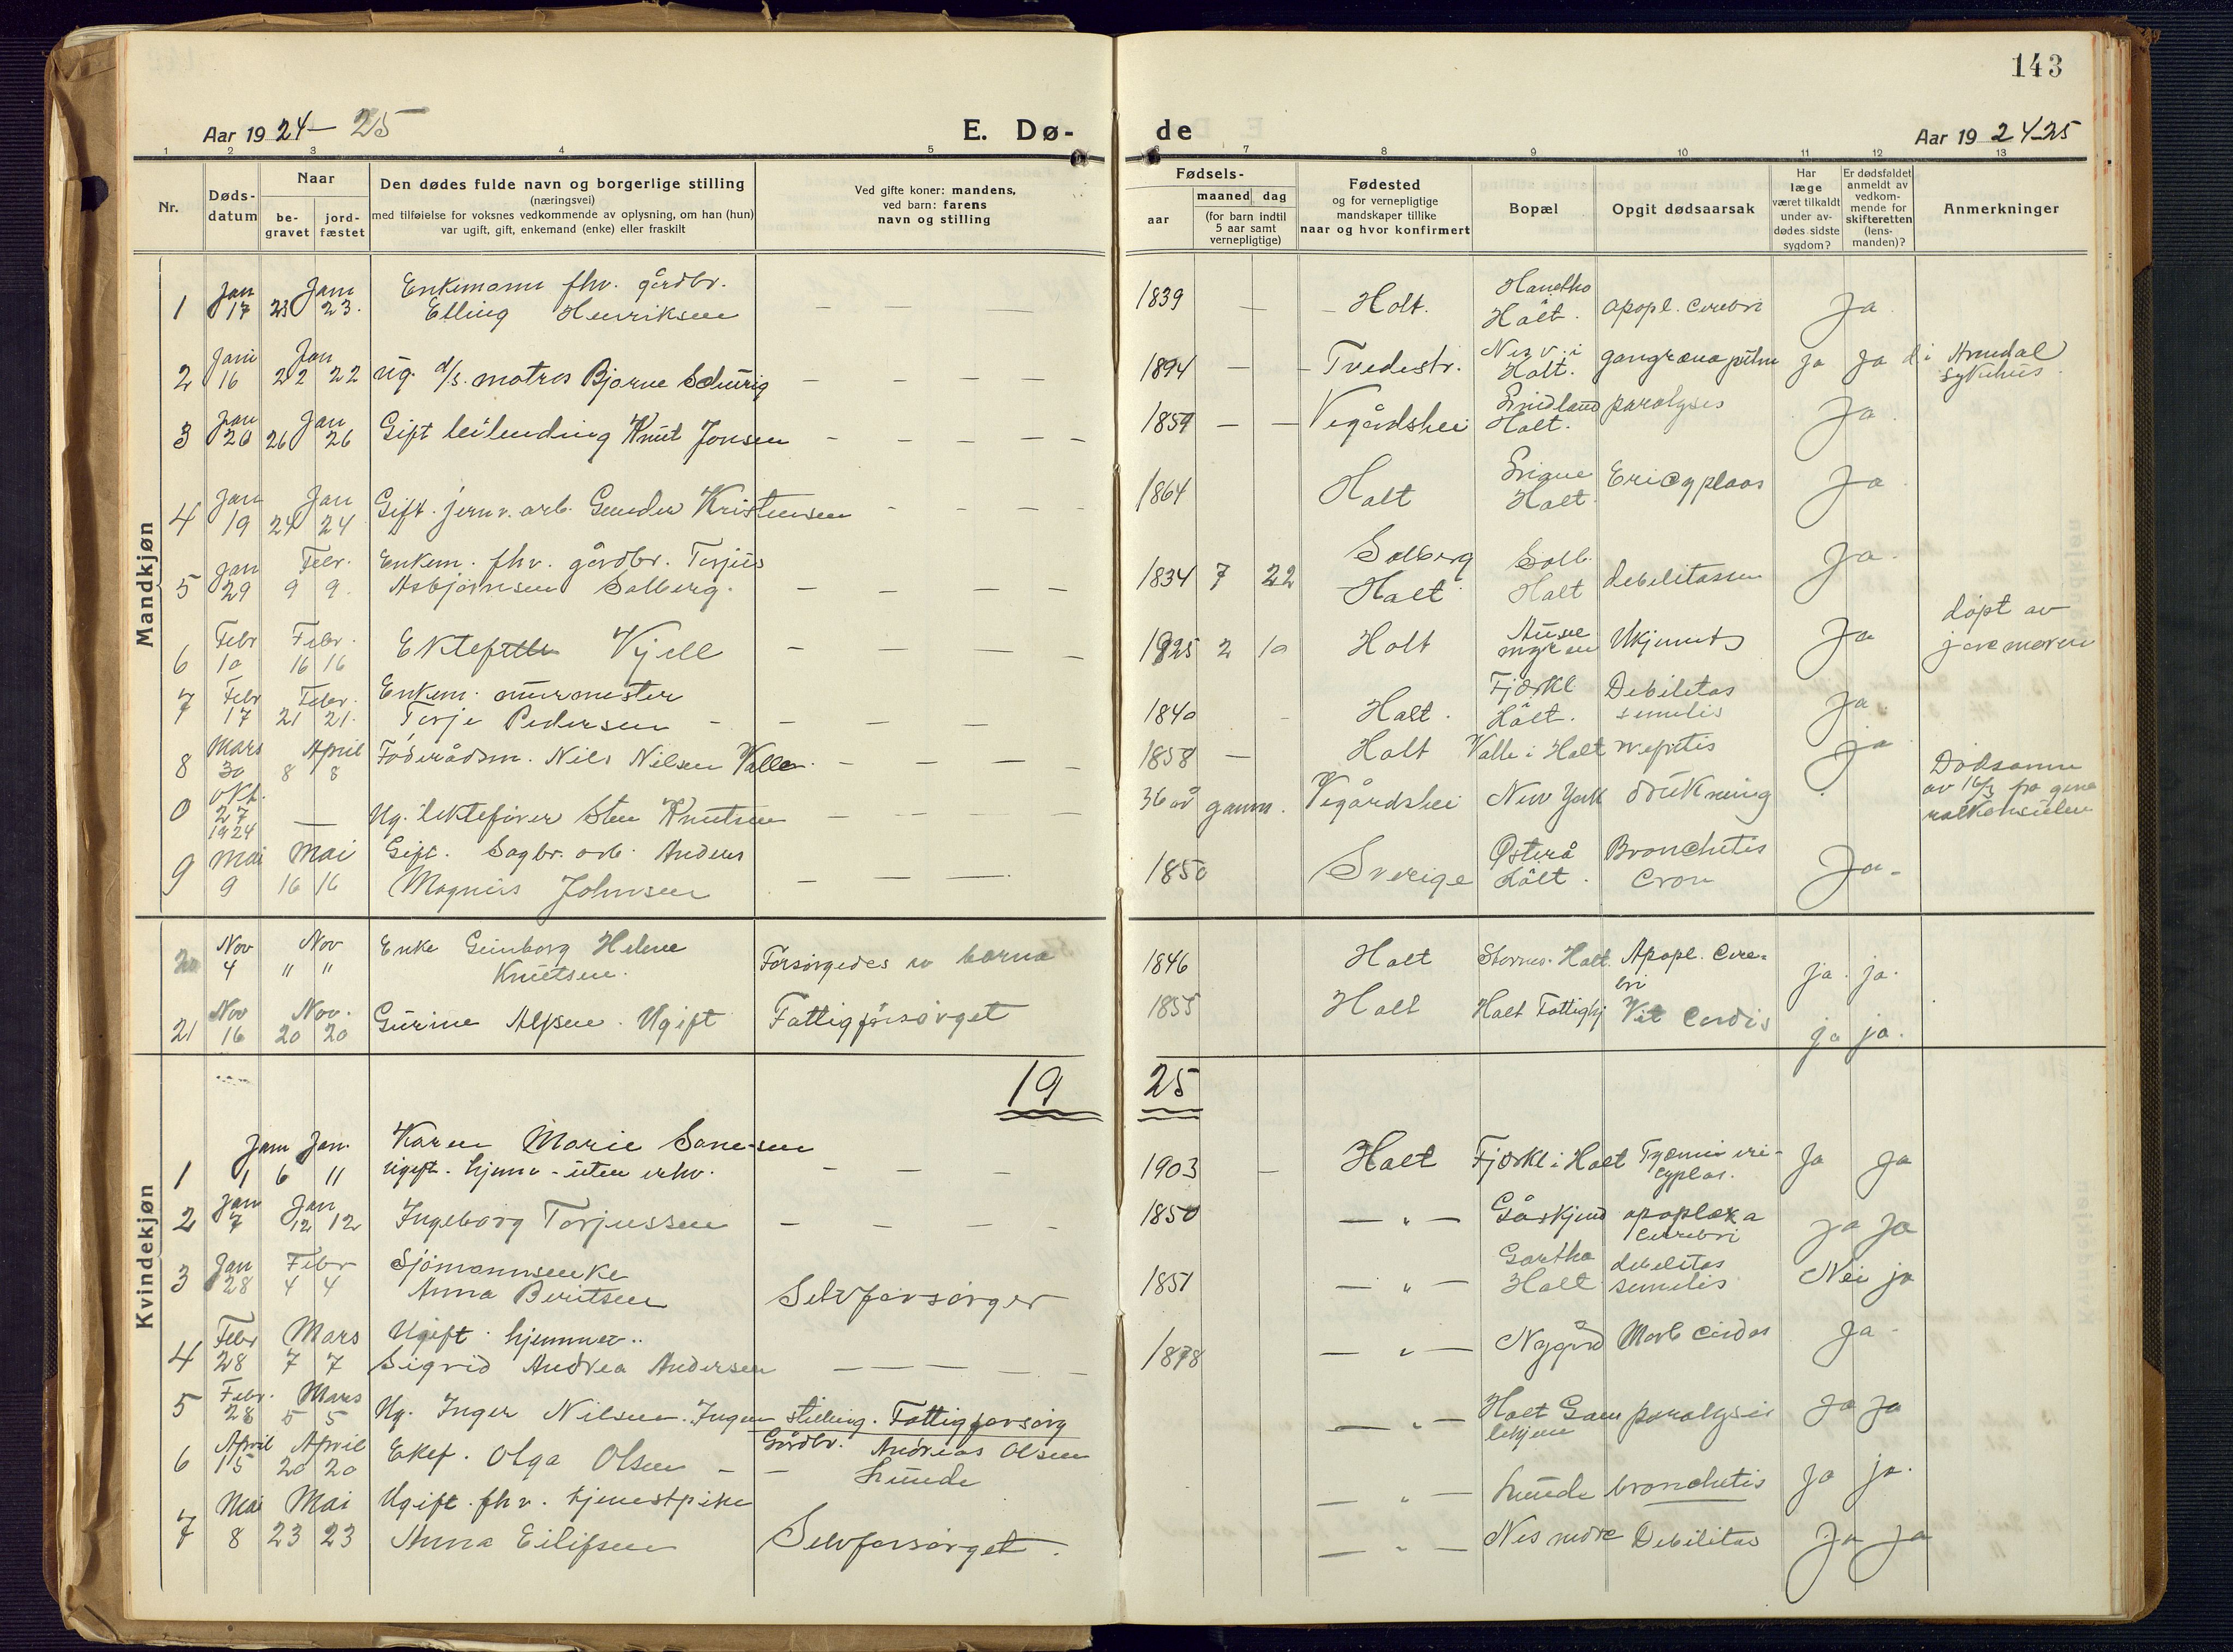 143
Aar 1924-25
E. Dø-
de
Aar 1924-25
1 2 3 4 5 6 7 8 9 10 11 12 13
Nr.
Døds-
datum
Naar
be-
gravet
jord-
fæstet
Den dødes fulde navn og borgerlige stilling
(næringsvei)
med tilføielse for voksnes vedkommende av oplysning, om han (hun)
var ugift, gift, enkemand (enke) eller fraskilt
Ved gifte koner: mandens,
ved barn: farens
navn og stilling
Fødsels-
aar
maaned dag
(for barn indtil
5 aar samt
vernepligtige)
Fødested
og for vernepligtige
mandskaper tillike
naar og hvor konfirmert
Bopæl
Opgit dødsaarsak
Har
læge
været tilkaldt
under av-
dødes sidste
sygdom?
Er dødsfaldet
anmeldt av
vedkom-
mende for
skifteretten
(lens-
manden)?
Anmerkninger
Mandkjøn
Jan Jan Enkemann fhv. gårdbr.
1 17 23 23. Elling Henriksen — — — 1839 — Holt. Holt. apopl. cerebri Ja
2 Jan 16 Jan 22 22 Ug. d/s. matros Bjarne — — — — 1894 — Tvedestr. Nesv. i Holt. gangræna pulm ja ja d i Arendal sykehus.
3 Jan 20 Jan 26 26 Gift leilending Knut Jonsen — — — — 1859 — — Vegårdshei Holt. paralyses Ja
4 Jan 19 Jan 24 24 Gift. jernv. arb. Gunder Kristensen — — — 1864 Holt Holt. Ja
5 Jan 29 Febr. 9 9. Enkem. fhv. gårdbr. Terjus
Asbjørnsen Solberg. — — — — 1834 7 22 Solberg Holt Solb. Holt Ja.
6 Febr 10 Febr. 16 16 Ektef Kjell — — — — 1925 2 10 Holt Ukjent Ja døpt av
jordmoren
7 Febr 17 Febr. 21 21. Enkem. murmester
Terje Pedersen — — — — 1840 Holt. Fjærkl Holt. Debilitas senilis Ja
8 Mars 30 April 8 8 Føderådsm. Nils Nilsen Valle. — — — — 1858 — Holt Valle i Holt nefritis ja
0 Okt. 27 1924 — Ug. Sten Knutsen — — — — 36 år gamm. Vegårdshei New York drukning Dødsanm
av 16/3 fra gene
ralkonsulen
9 Mai 9 Mai 16 16 Gift. Sagbr. arb. Anders
Magnus Johnsen — — — 1850 Sverige Østerå Holt. Bronchitis Cron Ja.
20 Nov 4 Nov " " Enke Helene
Knutsen. Forsørgedes av barna 1846 Holt Holt. Apopl. Cere-
bri ja. ja.
21 Nov 16 Nov. 20 20 Gurine Alfsen. Ugift Fattigforsørget 1855 Holt Holt Fattighj Vit Cordis ja ja.
19 25
Kvindekjøn
1 Jan 1 6 Jan. 11 Karen Marie
ugift. hjemme - uten erhv. — — — 1903 — Holt Fjærkl i Holt Ja Ja
2 Jan 7 Jan 12 12 Ingeborg Torjussen — — — — 1850 — " — Gåskjend apoplexa
cerebri ja ja
3 Jan 28 Febr 4 4 Sjømannsenke
Anna Berntsen Selvforsørger 1851 — " — Gartha Holt debilitas senilis Nei ja
4 Febr 28 Mars 7 7 Ugift. hjemmev..
Sigrid Andrea Andersen — — — — 1878 — " — Nygård Morb cordis Ja
5 Febr. 28 Mars 5 5 Ug. Inger Nilsen. Ingen stilling. Fattigforsørg — " — Holt Gam
lehjem paralysis Ja Ja
6 April 15 April 20 20 Ektf. Olga Olsen — — Gårdbr. Andreas Olsen
Lunde — " — Lunde bronchitis Ja ja.
7 Mai 8 Mai 23 23 Ugift. fhv. tjenestpike
Anna Eilifsen Selvforsørget. — " — Nes nedre Debilitas Ja Ja